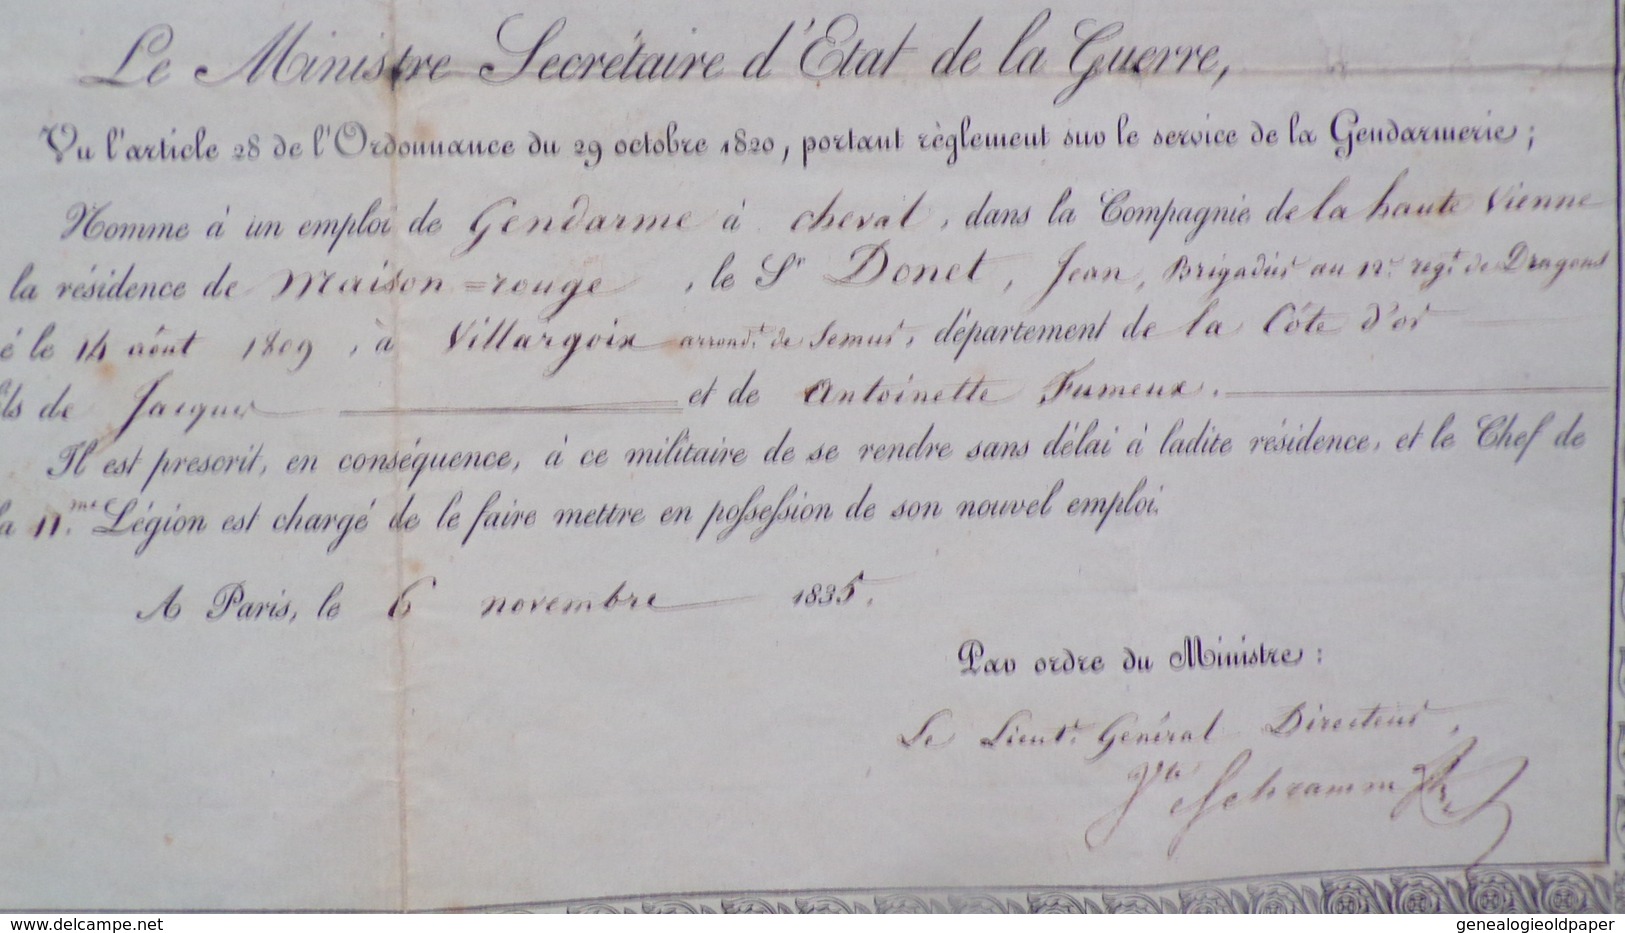 Le Ministre Secrétaire d'Etat de la Guerre,
Vu l'article 28 de l'Ordonnance du 29 octobre 1820, portant règlement sur le service de la Gendarmerie;
Nomme à un emploi de Gendarme à cheval, dans la Compagnie de la haute Vienne
la résidence de Maison=rouge, le Sr Donet, Jean, Brigadier au 12e regt de Dragons
é le 14 aôut 1809, à Villargoix arrondt de Semur, département de la Côte d'or
ils de Jacques et de Antoinette Fumeux.
Il est prescrit, en conséquence, à ce militaire de se rendre sans délai à ladite résidence, et le Chef de
la 11.me Légion est chargé de le faire mettre en possession de son nouvel emploi.
A Paris, le 6 novembre 1835.
Par ordre du Ministre:
Le Lieutt Général Directeur,
Vte Schramm
delcampe.net
genealogieoldpaper